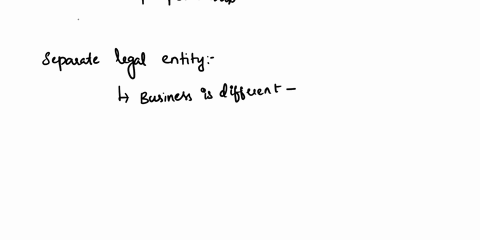 Separate legal entity:-
↳ Business is different -